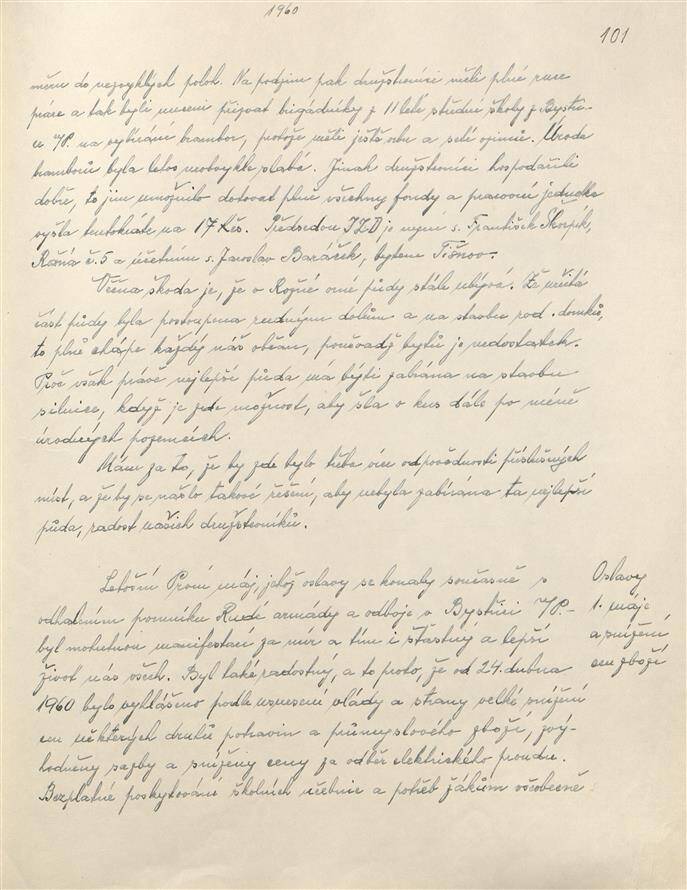 1960
101
měru do nezvyklých poloh. Na podzim pak družstevníci měli plné ruce
práce a tak byli nuceni přizvat brigádníky z 11leté střední školy z Bystři-
ce n/P. na vybírání brambor, protože měli ještě orbu a setí ozimů. Úroda
bramborů byla letos neobvykle slabá. Jinak družstevníci hospodařili
dobře, to jim umožnilo dotovat plně všechny fondy a pracovní jednotka
vyšla tentokráte na 17 Kčs. Předsedou JZD je nyní s. František Skořpík,
Rožná č. 5 a účetním s. Jaroslav Baráček, bytem Tišnov.
Věčná škoda je, že v Rožné orné půdy stále ubývá. Že určitá
část půdy byla postoupena rudným dolům a na stavbu rod. domků,
to plně chápe každý náš občan, poněvadž bytů je nedostatek.
Proč však právě nejlepší půda má býti zabírána na stavbu
silnice, když je zde možnost, aby šla o kus dále po méně
úrodných pozemcích.
Mám za to, že by zde bylo třeba více odpovědnosti příslušných
míst, a že by se našlo takové řešení, aby nebyla zabírána ta nejlepší
půda, radost našich družstevníků.
Letošní První máj, jehož oslavy se konaly současně s
odhalením pomníku Rudé armády a odboje v Bystřici n/P.-
byl mohutnou manifestací za mír a tím i šťastný a lepší
život nás všech. Byl také radostný, a to proto, že od 24. dubna
1960 bylo vyhlášeno podle usnesení vlády a strany velké snížení
cen některých druhů potravin a průmyslového zboží, zvý-
hodněny sazby a sníženy ceny za odběr elektrického proudu.
Bezplatné poskytování školních učebnic a potřeb žákům všeobecně
Oslavy
1. máje
a snížení
cen zboží